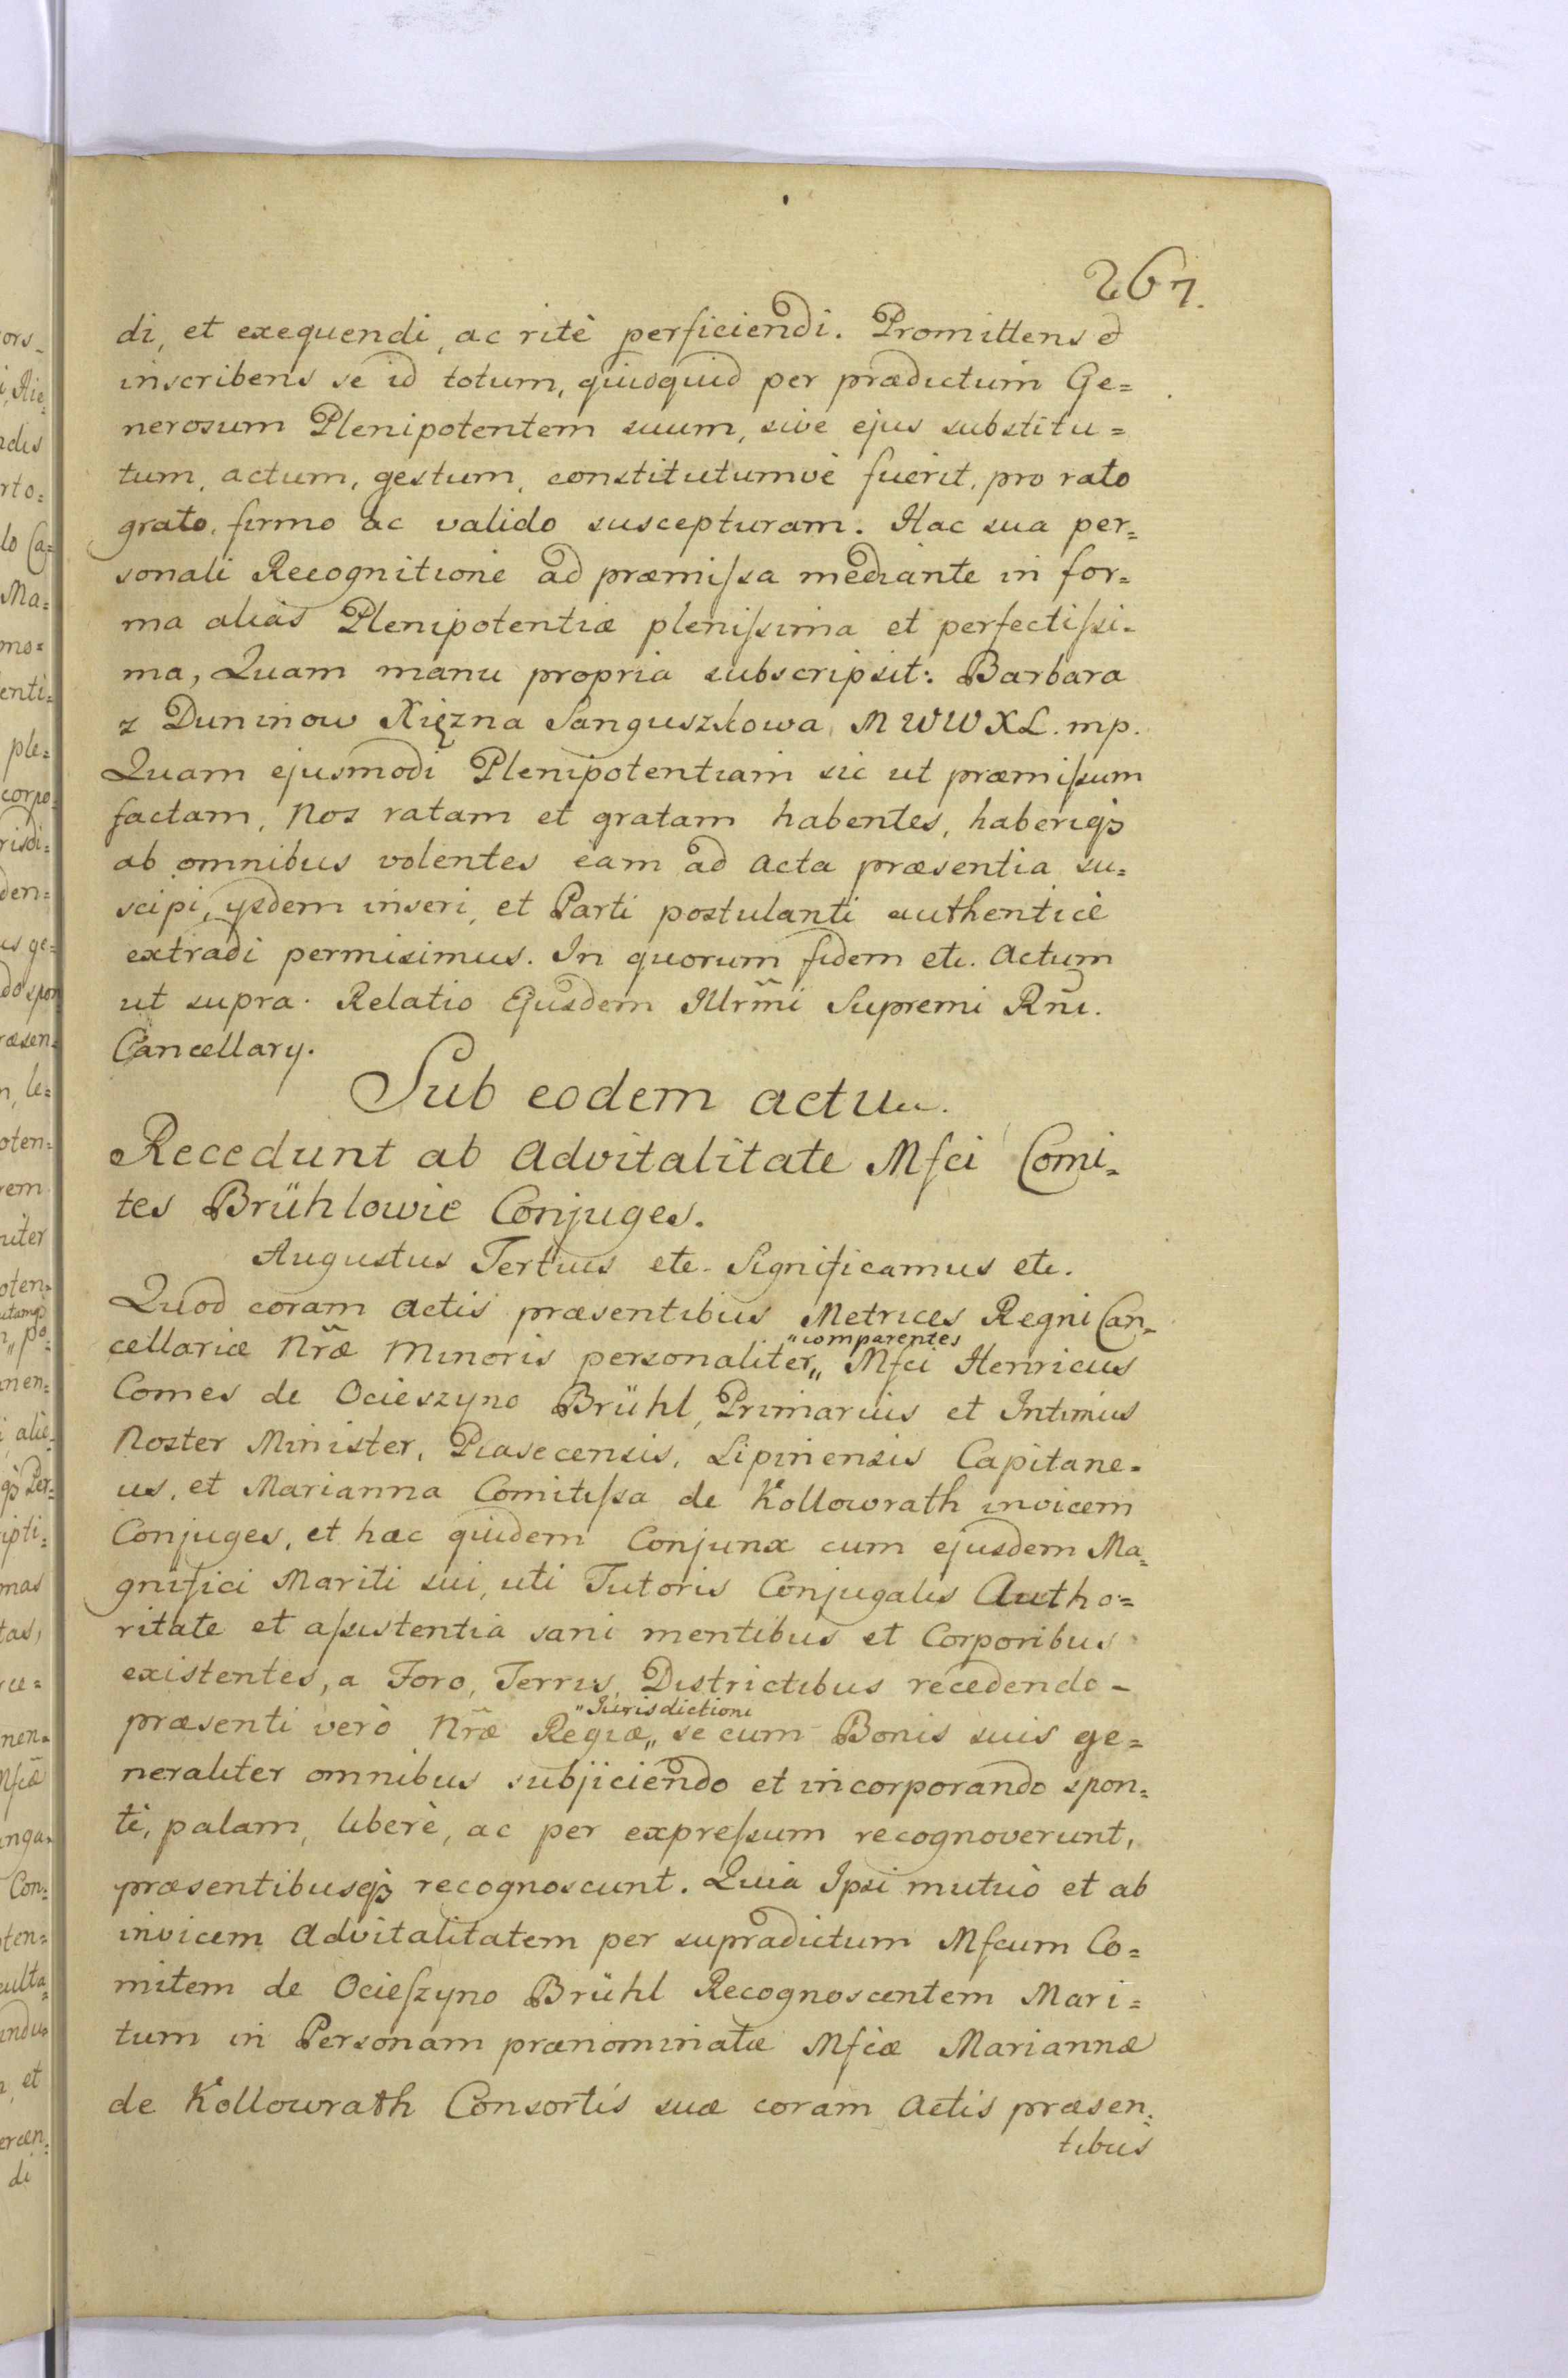 267.
di, et exequendi, ac ritè perficiendi. Promittens et
inscribens se id totum, quidquid per prædictum Ge=
nerosum Plenipotentem suum, sive ejus substitu=
tum, actum, gestum, constitutumvè fuerit, pro rato
grato, firmo ac valido suscepturam. Hac sua per=
sonali Recognitione ad præmiſsa mediante in for=
ma alias Plenipotentiæ pleniſsima et perfectiſsi=
ma, Quam manu propria subscripsit: Barbara
z Duninow Xięzna Sanguszkowa, M W W X L. mp.
Quam ejusmodi Plenipotentiam sic ut præmiſsum
factam, Nos ratam et gratam habentes, haberiqȝ
ab omnibus volentes eam ad Acta præsentia su=
scipi, ijsdem inseri, et Parti postulanti authenticè
extradi permisimus. In quorum fidem etc. Actum
ut supra. Relatio Ejusdem Illrm̃i Supremi Rñi.
Cancellary.
Sub eodem actu.
Recedunt ab Advitalitate Mfci Comi=
tes Brühlowie Conjuges.
Augustus Tertius etc. Significamus etc.
Quod coram Actis præsentibus Metrices Regni Can=
cellariæ Nr̃æ Minoris personaliter „comparentes„ Mfci Henricus
Comes de Ocieszyno Brühl, Primarius et Intimus
Noster Minister, Piasecensis, Lipinensis Capitane=
us, et Marianna Comitiſsa de Kollowrath invicem
Conjuges, et hæc quidem Conjunx cum ejusdem Ma=
gnifici Mariti sui, uti Tutoris Conjugalis Autho=
ritate et aſsistentia sani mentibus et Corporibus
existentes, a Foro, Terris, Districtibus recedendo –
præsenti verò Nr̃æ Regiæ „Jurisdictioni„ se cum Bonis suis ge=
neraliter omnibus subjiciendo et incorporando spon=
tè, palam, liberè, ac per expreſsum recognoverunt,
præsentibusqȝ recognoscunt. Quia Ipsi mutuò et ab
invicem Advitalitatem per supradictum Mfcum Co=
mitem de Ocieſzyno Brühl Recognoscentem Mari=
tum in Personam prænominatæ Mfcæ Mariannæ
de Kollowrath Consortis suæ coram Actis præsen=
tibus